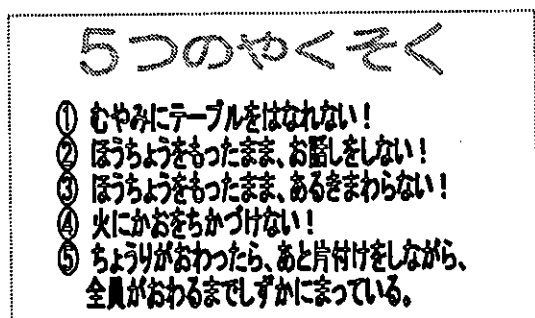 5つのやくそく
① むやみにテーブルをはなれない!
② ほうちょうをもったまま、お話しをしない!
③ ほうちょうをもったまま、あるきまわらない!
④ 火にかおをちかづけない!
⑤ ちょうりがおわったら、あと片付けをしながら、
全員がおわるまでしずかにまっている。